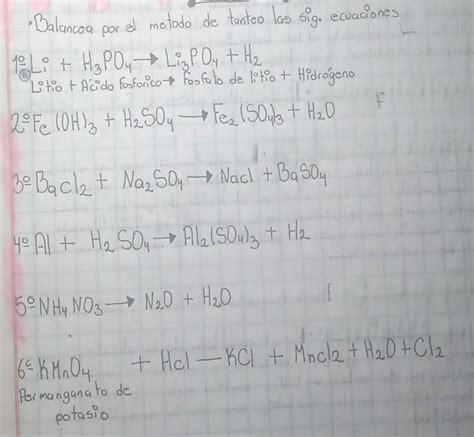 • Balancea por el metodo de tanteo las sig. ecuaciones
1º Li + H₃PO₄ → Li₃PO₄ + H₂
Litio + Ácido fosforico → Fosfato de litio + Hidrógeno
2º Fe(OH)₃ + H₂SO₄ → Fe₂(SO₄)₃ + H₂O
3º BaCl₂ + Na₂SO₄ → NaCl + BaSO₄
4º Al + H₂SO₄ → Al₂(SO₄)₃ + H₂
5º NH₄NO₃ → N₂O + H₂O
6º KMnO₄ + HCl — KCl + MnCl₂ + H₂O + Cl₂
Permanganato de
potasio